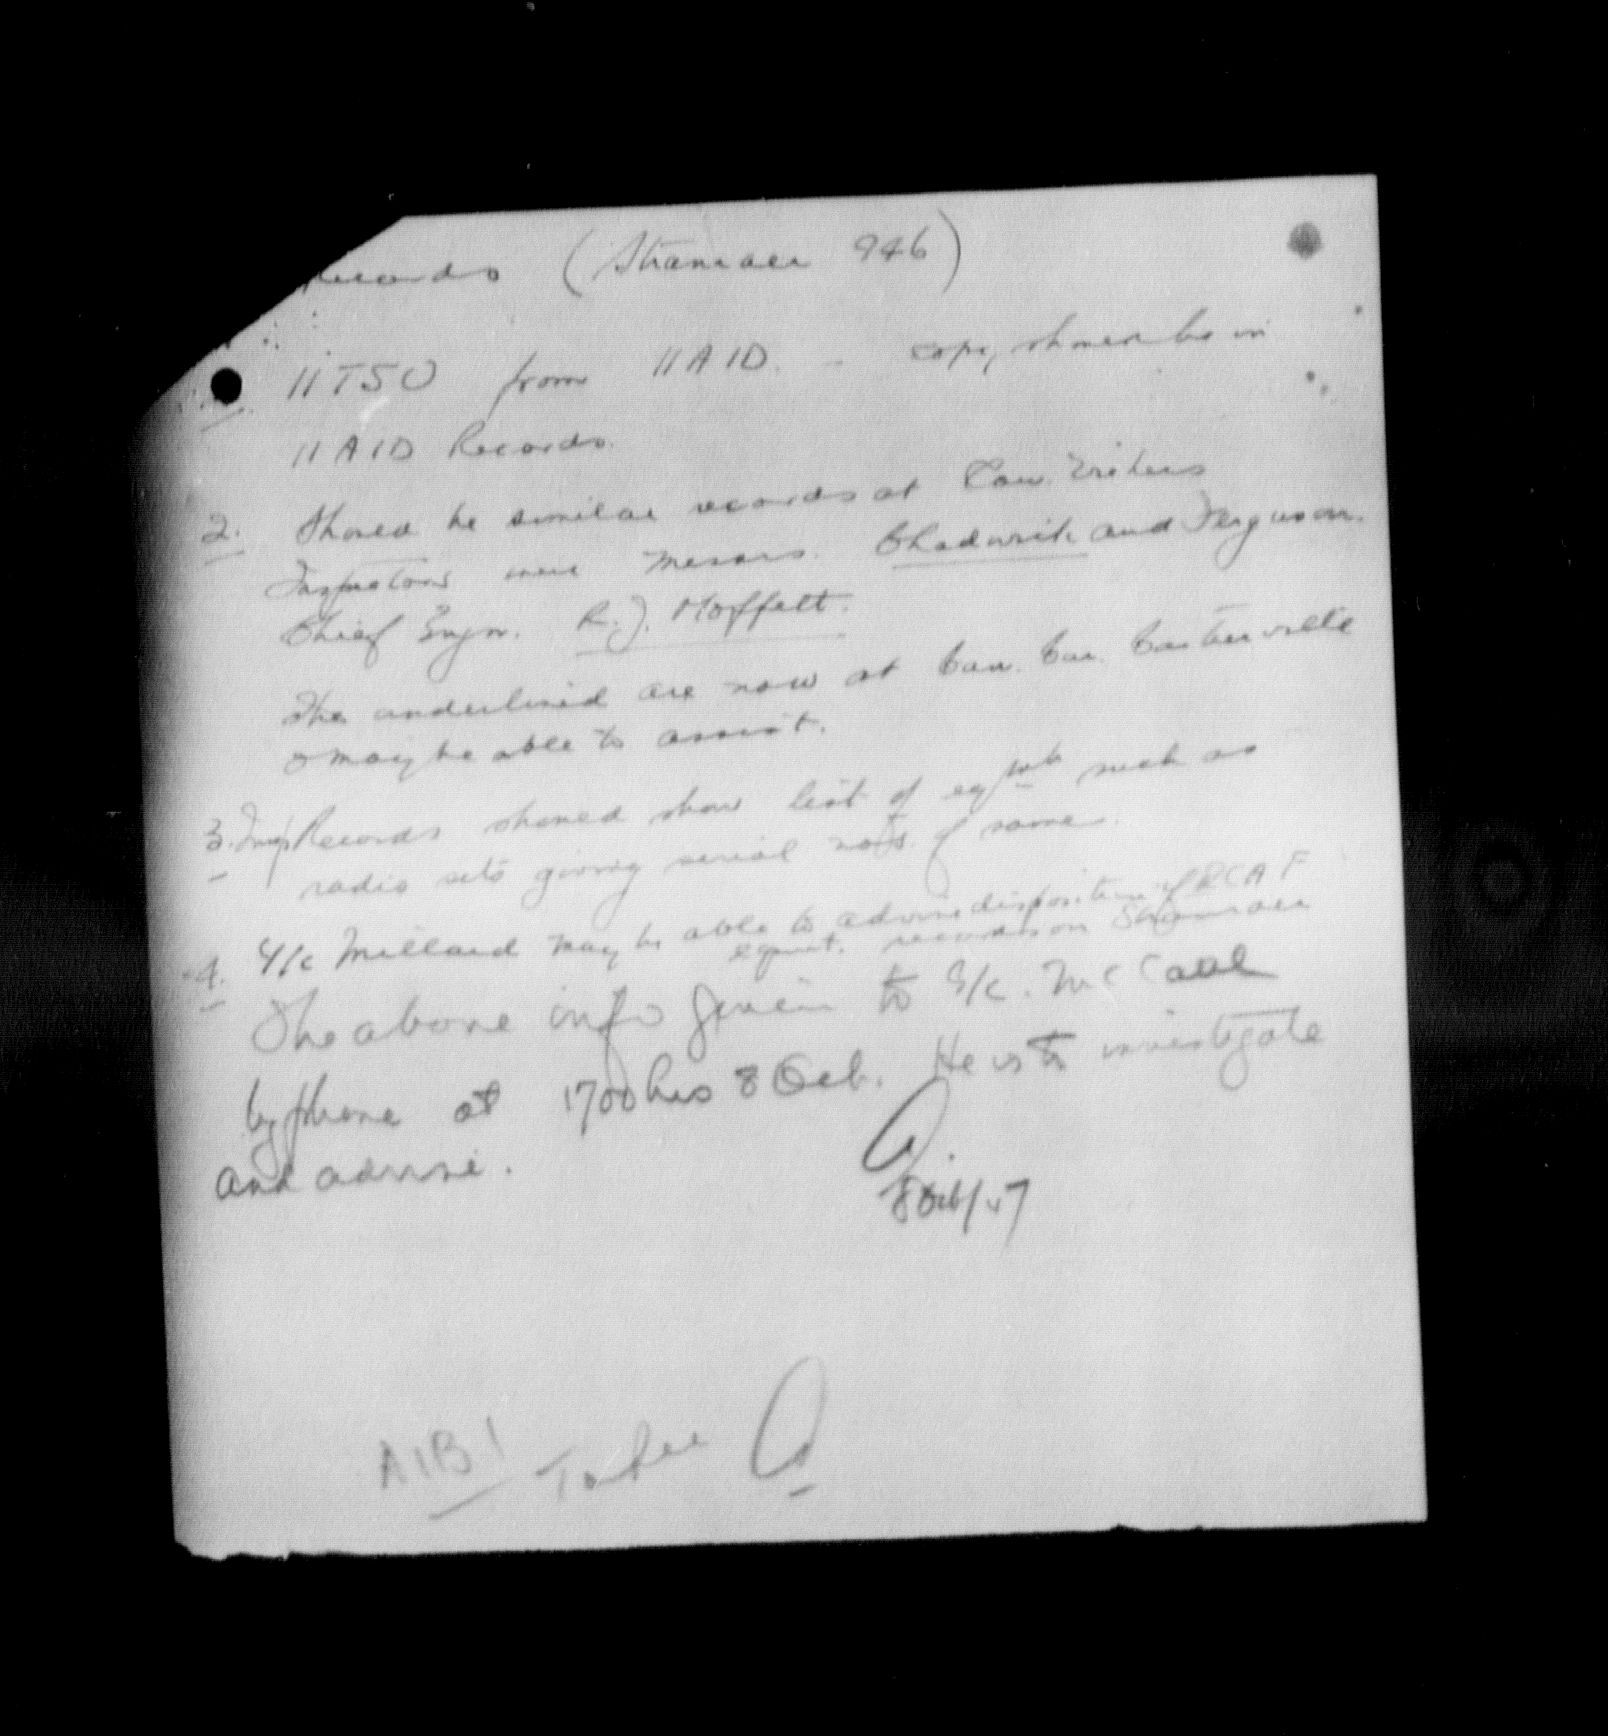 Records (Stranraer 946)
11 TSU from 11 AID. - copy should be in
11 AID Records.
2. Should be similar records at Can. Vickers
Inspectors were Messrs. Chadwick and Ferguson.
Chief Engn. R.J. Moffett.
The underlined are now at Can. Car. Cartierville
& may be able to assist.
3. Insp Records should show list of eqpmt such as
radio sets giving serial no's. of same.
4. S/L Millard may be able to advise disposition of RCAF
equipt. records on Stranraer
The above info given to S/L. McCaul
by phone at 1700 hrs 8 Oct. He is to investigate
and advise.
8 Oct/47
AIB1 To see